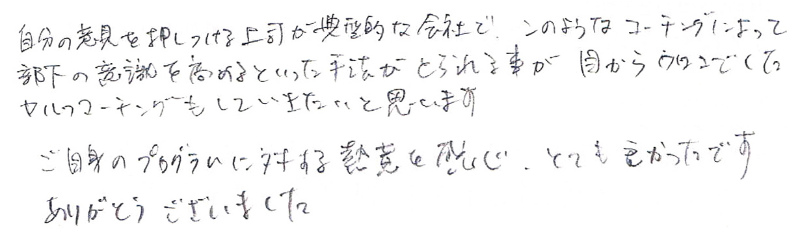 自分の意見を押しつける上司が典型的な会社で、このようなコーチングによって
部下の意識を高めるといった手法がとられる事が目からウロコでした
セルフコーチングもしていきたいと思います
ご自身のプログラムに対する熱意を感じ、とても良かったです
ありがとうございました